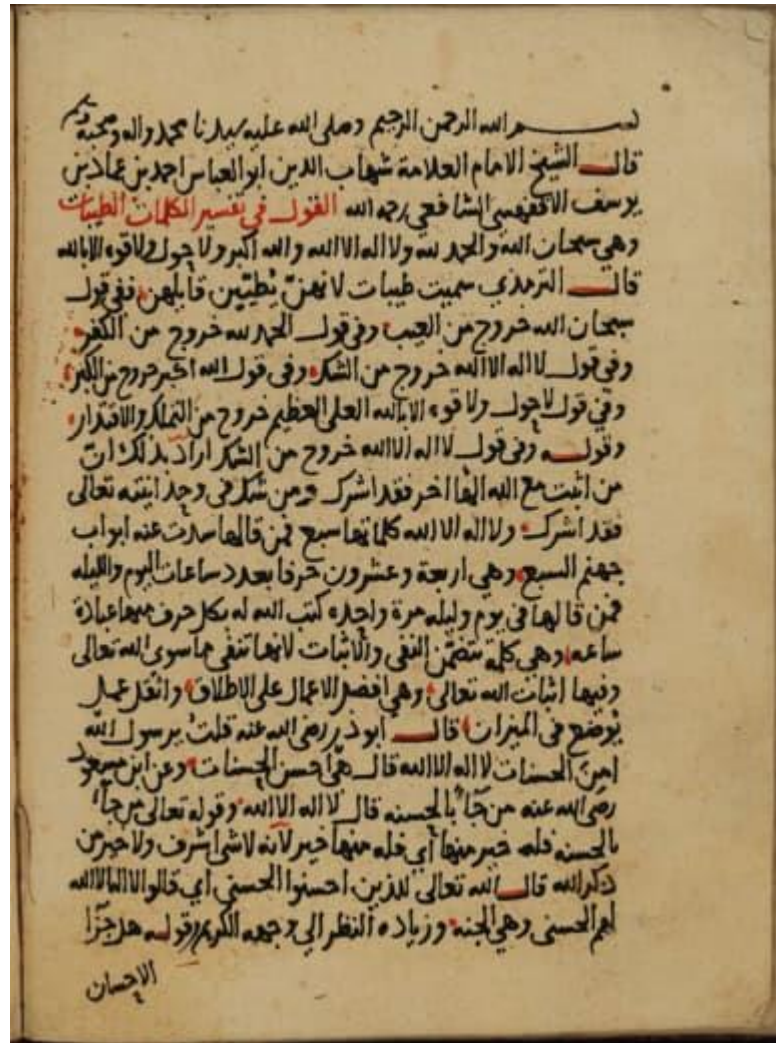 بسم الله الرحمن الرحيم وصلى الله عليه سيدنا محمد واله وصحبه وسلم
قال الشيخ الامام العلامة شهاب الدين ابو العباس احمد بن عماد بن
يوسف الاقفهسي الشافعي رحمه الله القول في تفسير الكلمات الطيبات
وهي سبحان الله والحمد لله ولا اله الا الله والله اكبر ولا حول ولا قوه الا بالله
قال الترمذي سميت طيبات لانهن يُطيّبن قايلهن ففي قول
سبحان الله خروج من العيب وفي قول الحمد لله خروج من الكفر
وفي قول لا اله الا الله خروج من الشك وفي قول الله اكبر خروج من الكبر
وفي قول لا حول ولا قوه الا بالله العلي العظيم خروج من التملك والاقتدار
وقوله وفي قول لا اله الا الله خروج من الشك اراد بذلك ان
من اثبت مع الله الها اخر فقد اشرك ومن شك في وحدانيته تعالى
فقد اشرك ولا اله الا الله كلماتها سبع فمن قالها سدت عنه ابواب
جهنم السبع وهي اربعة وعشرون حرفا بعدد ساعات اليوم والليله
فمن قالها في يوم وليله مرة واحده كتب الله له بكل حرف منها عبادة
ساعه وهي كلمة تتضمّن النفي والاثبات لانها تنفي ما سوى الله تعالى
وفيها اثبات الله تعالى وهي افضل الاعمال على الاطلاق واثقل عمل
يوضع في الميزان قال أبو ذر رضي الله عنه قلت يرسول الله
امن الحسنات لا اله الا الله قال هي أحسن الحسنات وعن ابن مسعود
رضي الله عنه من جآء بالحسنه قال لا اله الا الله وقوله تعالى من جآء
بالحسنه فله خير منها أي فله منها خير لانه لا شي اشرف ولا خير من
ذكر الله قال الله تعالى للذين احسنوا الحسنى اي قالوا لا اله الا الله
لهم الحسنى وهي الجنه وزياده النظر الى وجهه الكريم وقوله هل جزآ
الاحسان